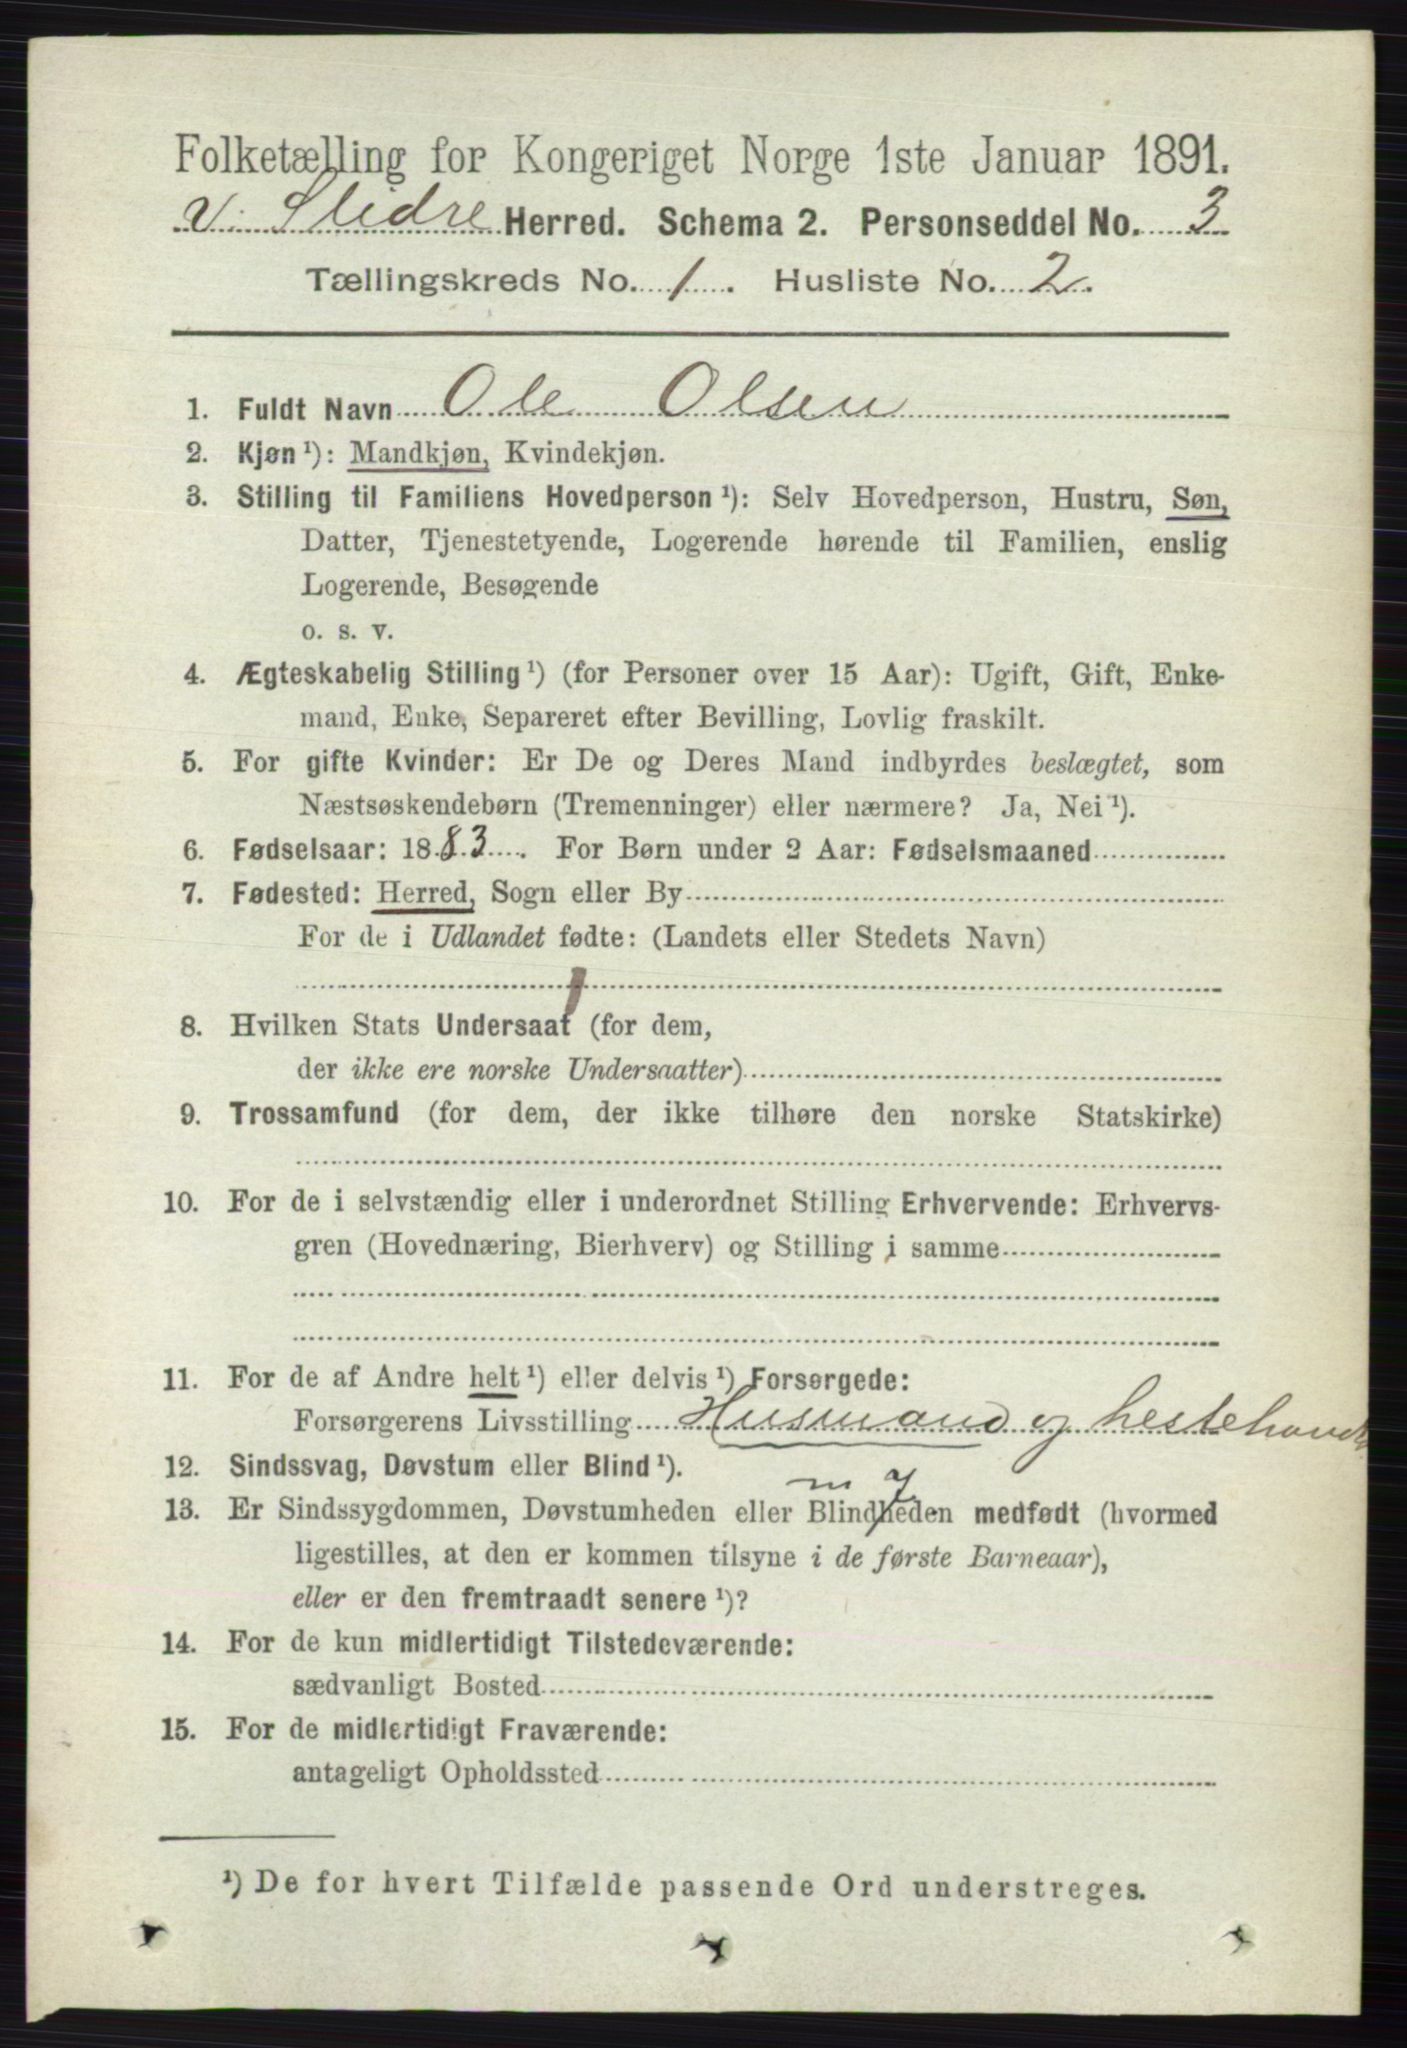 Folketælling for Kongeriget Norge 1ste Januar 1891.
V. Slidre Herred. Schema 2. Personseddel No. 3
Tællingskreds No. 1. Husliste No. 2.
1. Fuldt Navn Ole Olsen
2. Kjøn ¹): Mandkjøn, Kvindekjøn.
3. Stilling til Familiens Hovedperson ¹): Selv Hovedperson, Hustru, Søn,
Datter, Tjenestetyende, Logerende hørende til Familien, enslig
Logerende, Besøgende
o. s. v.
4. Ægteskabelig Stilling ¹) (for Personer over 15 Aar): Ugift, Gift, Enke-
mand, Enke, Separeret efter Bevilling, Lovlig fraskilt.
5. For gifte Kvinder: Er De og Deres Mand indbyrdes beslægtet, som
Næstsøskendebørn (Tremenninger) eller nærmere? Ja, Nei ¹).
6. Fødselsaar: 1883. For Børn under 2 Aar: Fødselsmaaned
7. Fødested: Herred, Sogn eller By
For de i Udlandet fødte: (Landets eller Stedets Navn)
8. Hvilken Stats Undersaat (for dem,
der ikke ere norske Undersaatter)
9. Trossamfund (for dem, der ikke tilhøre den norske Statskirke)
10. For de i selvstændig eller i underordnet Stilling Erhvervende: Erhvervs-
gren (Hovednæring, Bierhverv) og Stilling i samme
11. For de af Andre helt ¹) eller delvis ¹) Forsørgede:
Forsørgerens Livsstilling Husmand og hestehandl
12. Sindssvag, Døvstum eller Blind ¹).
13. Er Sindssygdommen, Døvstumheden eller Blindheden medfødt (hvormed
ligestilles, at den er kommen tilsyne i de første Barneaar),
eller er den fremtraadt senere ¹)?
14. For de kun midlertidigt Tilstedeværende:
sædvanligt Bosted
15. For de midlertidigt Fraværende:
antageligt Opholdssted
¹) De for hvert Tilfælde passende Ord understreges.